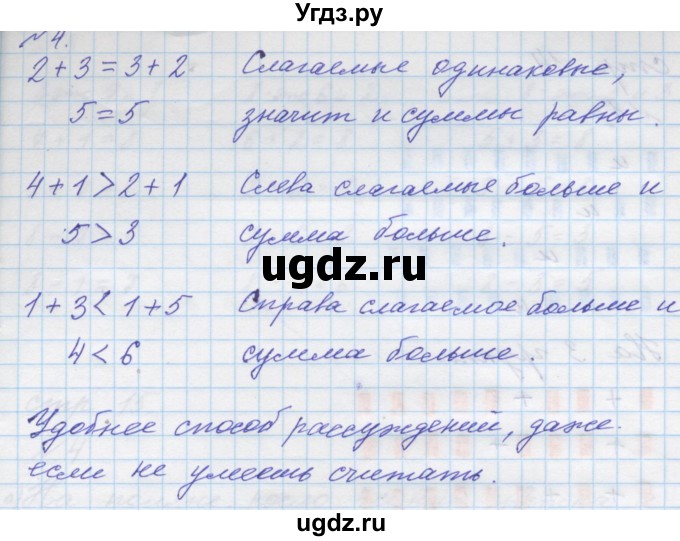 Угдз.ру
№4.
2+3=3+2 Слагаемые одинаковые,
5=5 значит и суммы равны.
4+1>2+1 Слева слагаемые больше и
5>3 сумма больше.
ugdz.ru
1+3<1+5 Справа слагаемое больше и
4<6 сумма больше.
ugdz.ru
Удобнее способ рассуждений, даже
если не умеешь считать.
ugdz.ru